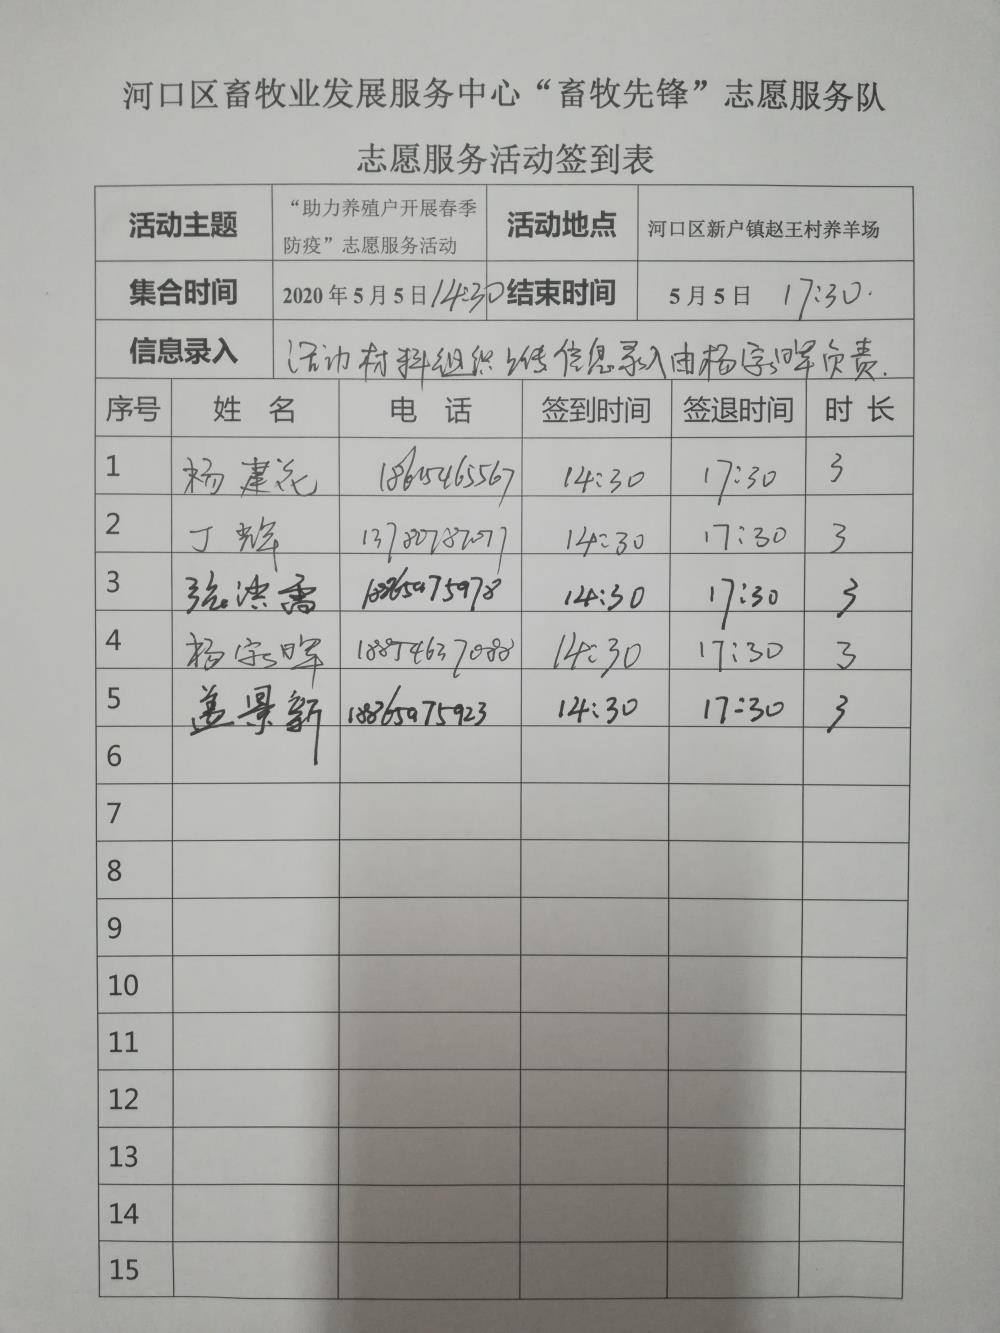 河口区畜牧业发展服务中心“畜牧先锋”志愿服务队
志愿服务活动签到表
活动主题 “助力养殖户开展春季防疫”志愿服务活动 活动地点 河口区新户镇赵王村养羊场
集合时间 2020年5月5日14:30 结束时间 5月5日 17:30.
信息录入 活动材料组织上传信息录入由杨字晖负责.
序号 姓 名 电 话 签到时间 签退时间 时 长
1 杨建花 18615465567 14:30 17:30 3
2 丁辉 14:30 17:30 3
3 张洪 14:30 17:30 3
4 杨 晖 18854637088 14:30 17:30 3
5 盖景新 18365975923 14:30 17:30 3
6
7
8
9
10
11
12
13
14
15